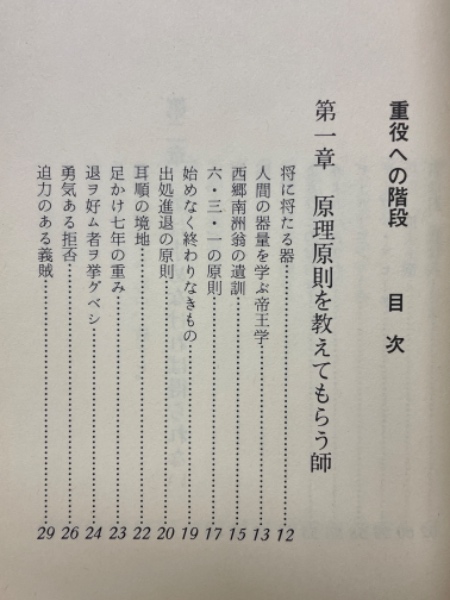 重役への階段　目次
第一章　原理原則を教えてもらう師
将に将たる器……12
人間の器量を学ぶ帝王学……13
西郷南洲翁の遺訓……15
六・三・一の原則……17
始めなく終わりなきもの……19
出処進退の原則……20
耳順の境地……22
足かけ七年の重み……23
退ヲ好ム者ヲ挙グベシ……24
勇気ある拒否……26
迫力のある義賊……29